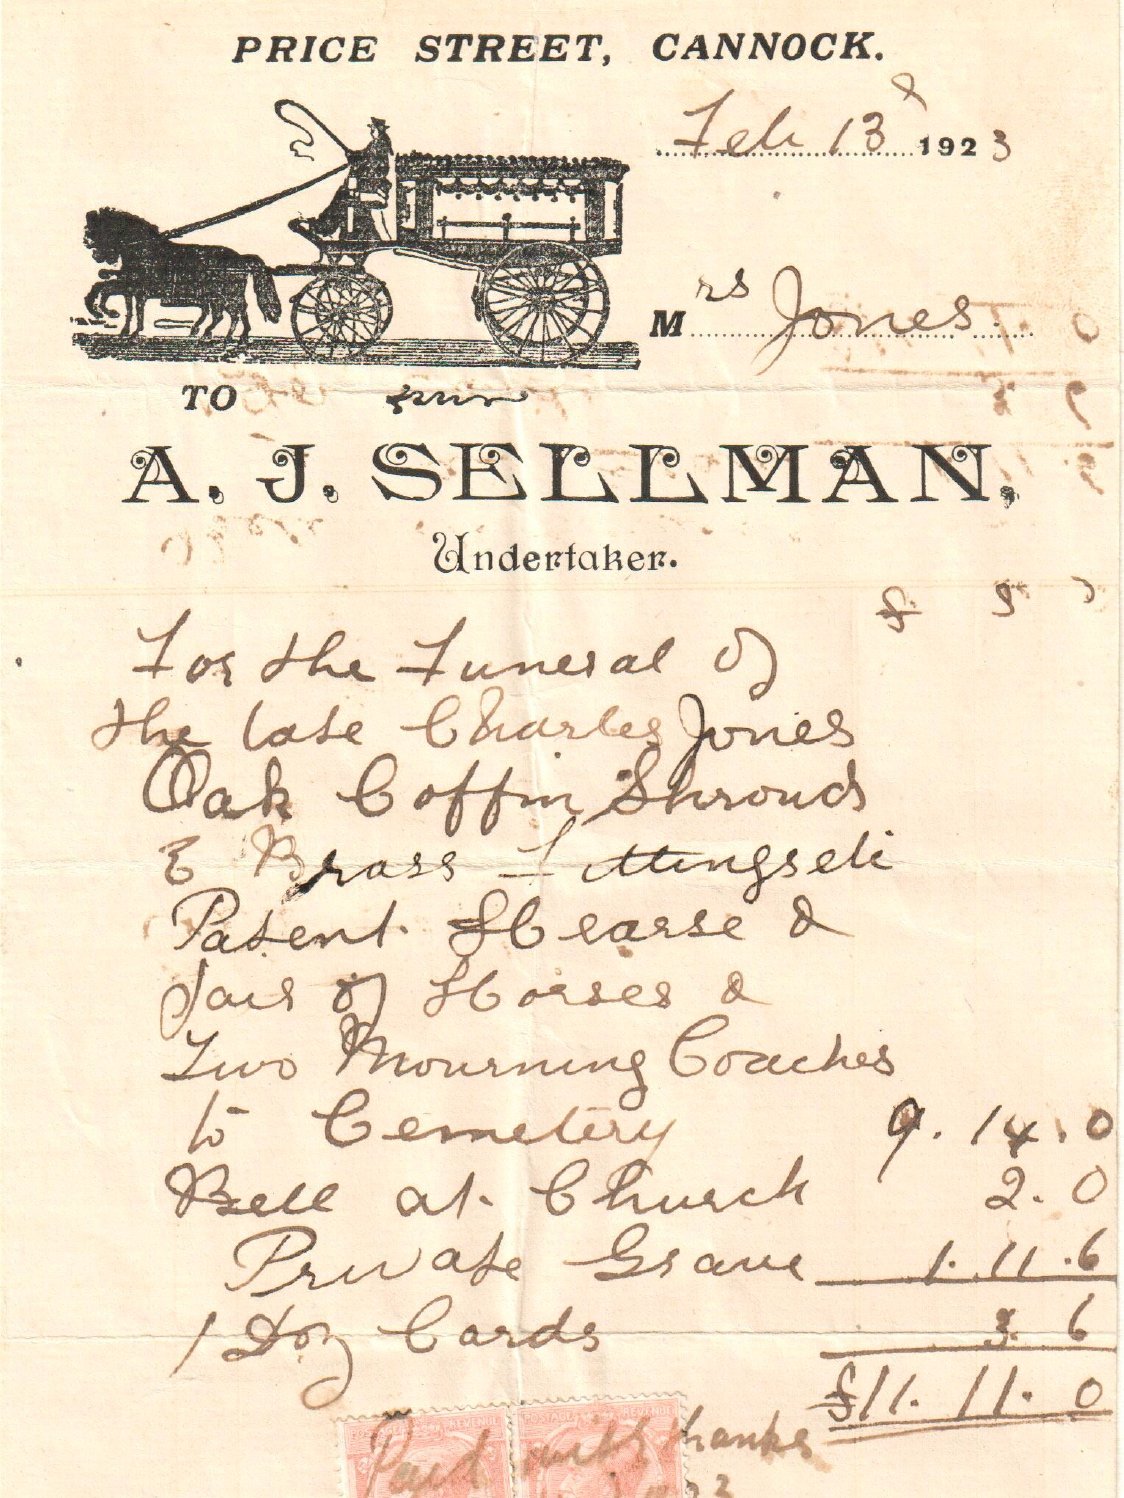 PRICE STREET, CANNOCK.
Feb 13 1923
Mrs Jones
TO
A. J. SELLMAN,
Undertaker.
£ s
For the Funeral of
the late Charles Jones
Oak Coffin Shroud
& Brass Fittings etc
Patent Hearse &
Pair of Horses &
Two Mourning Coaches
to Cemetery 9. 14. 0
Bell at Church 2. 0
Private Grave 1. 11. 6
1 Doz Cards 3. 6
£11. 11. 0
REVENUE POSTAGE REVENUE
Paid with thanks